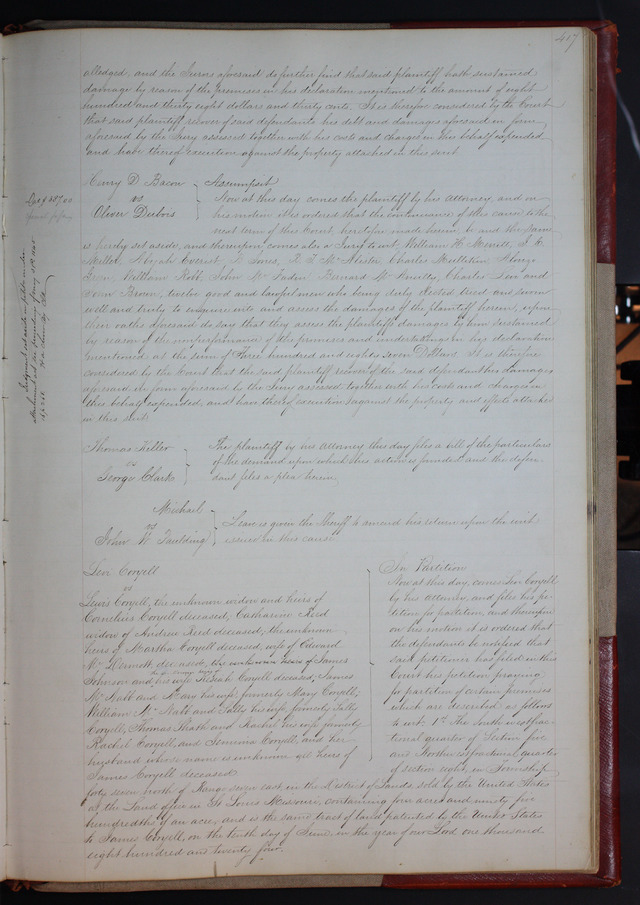 417
alledged, and the Jurors aforesaid do further find that said plaintiff hath sustained
damage by reason of the premises in his declaration mentioned to the amount of eight
hundred and thirty eight dollars and thirty cents. It is therefore considered by the Court
that said plaintiff recover of said defendants his debt and damages aforesaid in form
aforesaid by the Jury assessed together with his cost and charges in this behalf expended
and have thereof execution against the property attached in this suit
Henry D. Bacon
vs
Oliver Dubois
Assumpsit
Now at this day comes the plaintiff by his attorney, and on
his motion it is ordered that the continuance of this cause to the
next term of this Court, heretofore made herein, be and the same
is hereby set aside, and thereupon comes also a Jury to wit, William H. Merrill,
Miller, Abijah Everest, Jones, McAlister, Charles Alonzo
Green, William Robb, John McFaden Barnard Charles Levi and
Brown, twelve good and lawful men who being duly elected tried and sworn
well and truly to enquire into and assess the damages of the plaintiff herein, upon
their oaths aforesaid do say that they assess the plaintiffs damages by him sustained
by reason of the nonperformance of the promises and undertakings in his declaration
mentioned at the sum of Three hundred and eighty seven Dollars. It is therefore
considered by the Court that the said plaintiff recover of the said defendant his damages
aforesaid in form aforesaid by the Jury assessed together with his costs and charges in
this behalf expended, and have thereof execution against the property and effects attached
in this suit
Thomas Keller
vs
George Clark
The plaintiff by his attorney this day files a bill of the particulars
of the demand upon which this action is founded and the defen-
dant files a plea herein
Michael
vs
John W Paulding
Leave is given the Sheriff to amend his return upon the writ
issued in this cause
Levi Coryell
vs
Lewis Coryell, the unknown widow and heirs of
Cornelius Coryell deceased, Catharine Reed
widow of Andrew Reed deceased, the unknown
heirs of Martha Coryell deceased, wife of Edward
McDermott deceased, the unknown heirs of James
Johnson and his wife Keziah Coryell deceased, James
McNabb and Mary his wife formerly Mary Coryell,
William McNabb and Tabby his wife, formerly Tabby
Coryell, Thomas Heath and Rachel his wife formerly
Rachel Coryell, and Jemima Coryell, and her
husband whose name is unknown all heirs of
James Coryell deceased
In Partition
Now at this day comes Levi Coryell
by his attorney, and files his pe-
tition for partition, and thereupon
on his motion it is ordered that
the defendants be notified that
said petitioner has filed in this
Court his petition praying
for partition of certain premises
which are described as follows
to wit: 1st The South west frac-
tional quarter of Section five
and North west fractional quarter
of section eight, in Township
forty seven north of Range seven east, in the District of Lands sold by the United States
at the Land office in St Louis Missouri, containing five acres and ninety five
hundredths of an acre, and is the same tract of land patented by the United States
to James Coryell, on the tenth day of June, in the year of our Lord one thousand
eight hundred and twenty four.